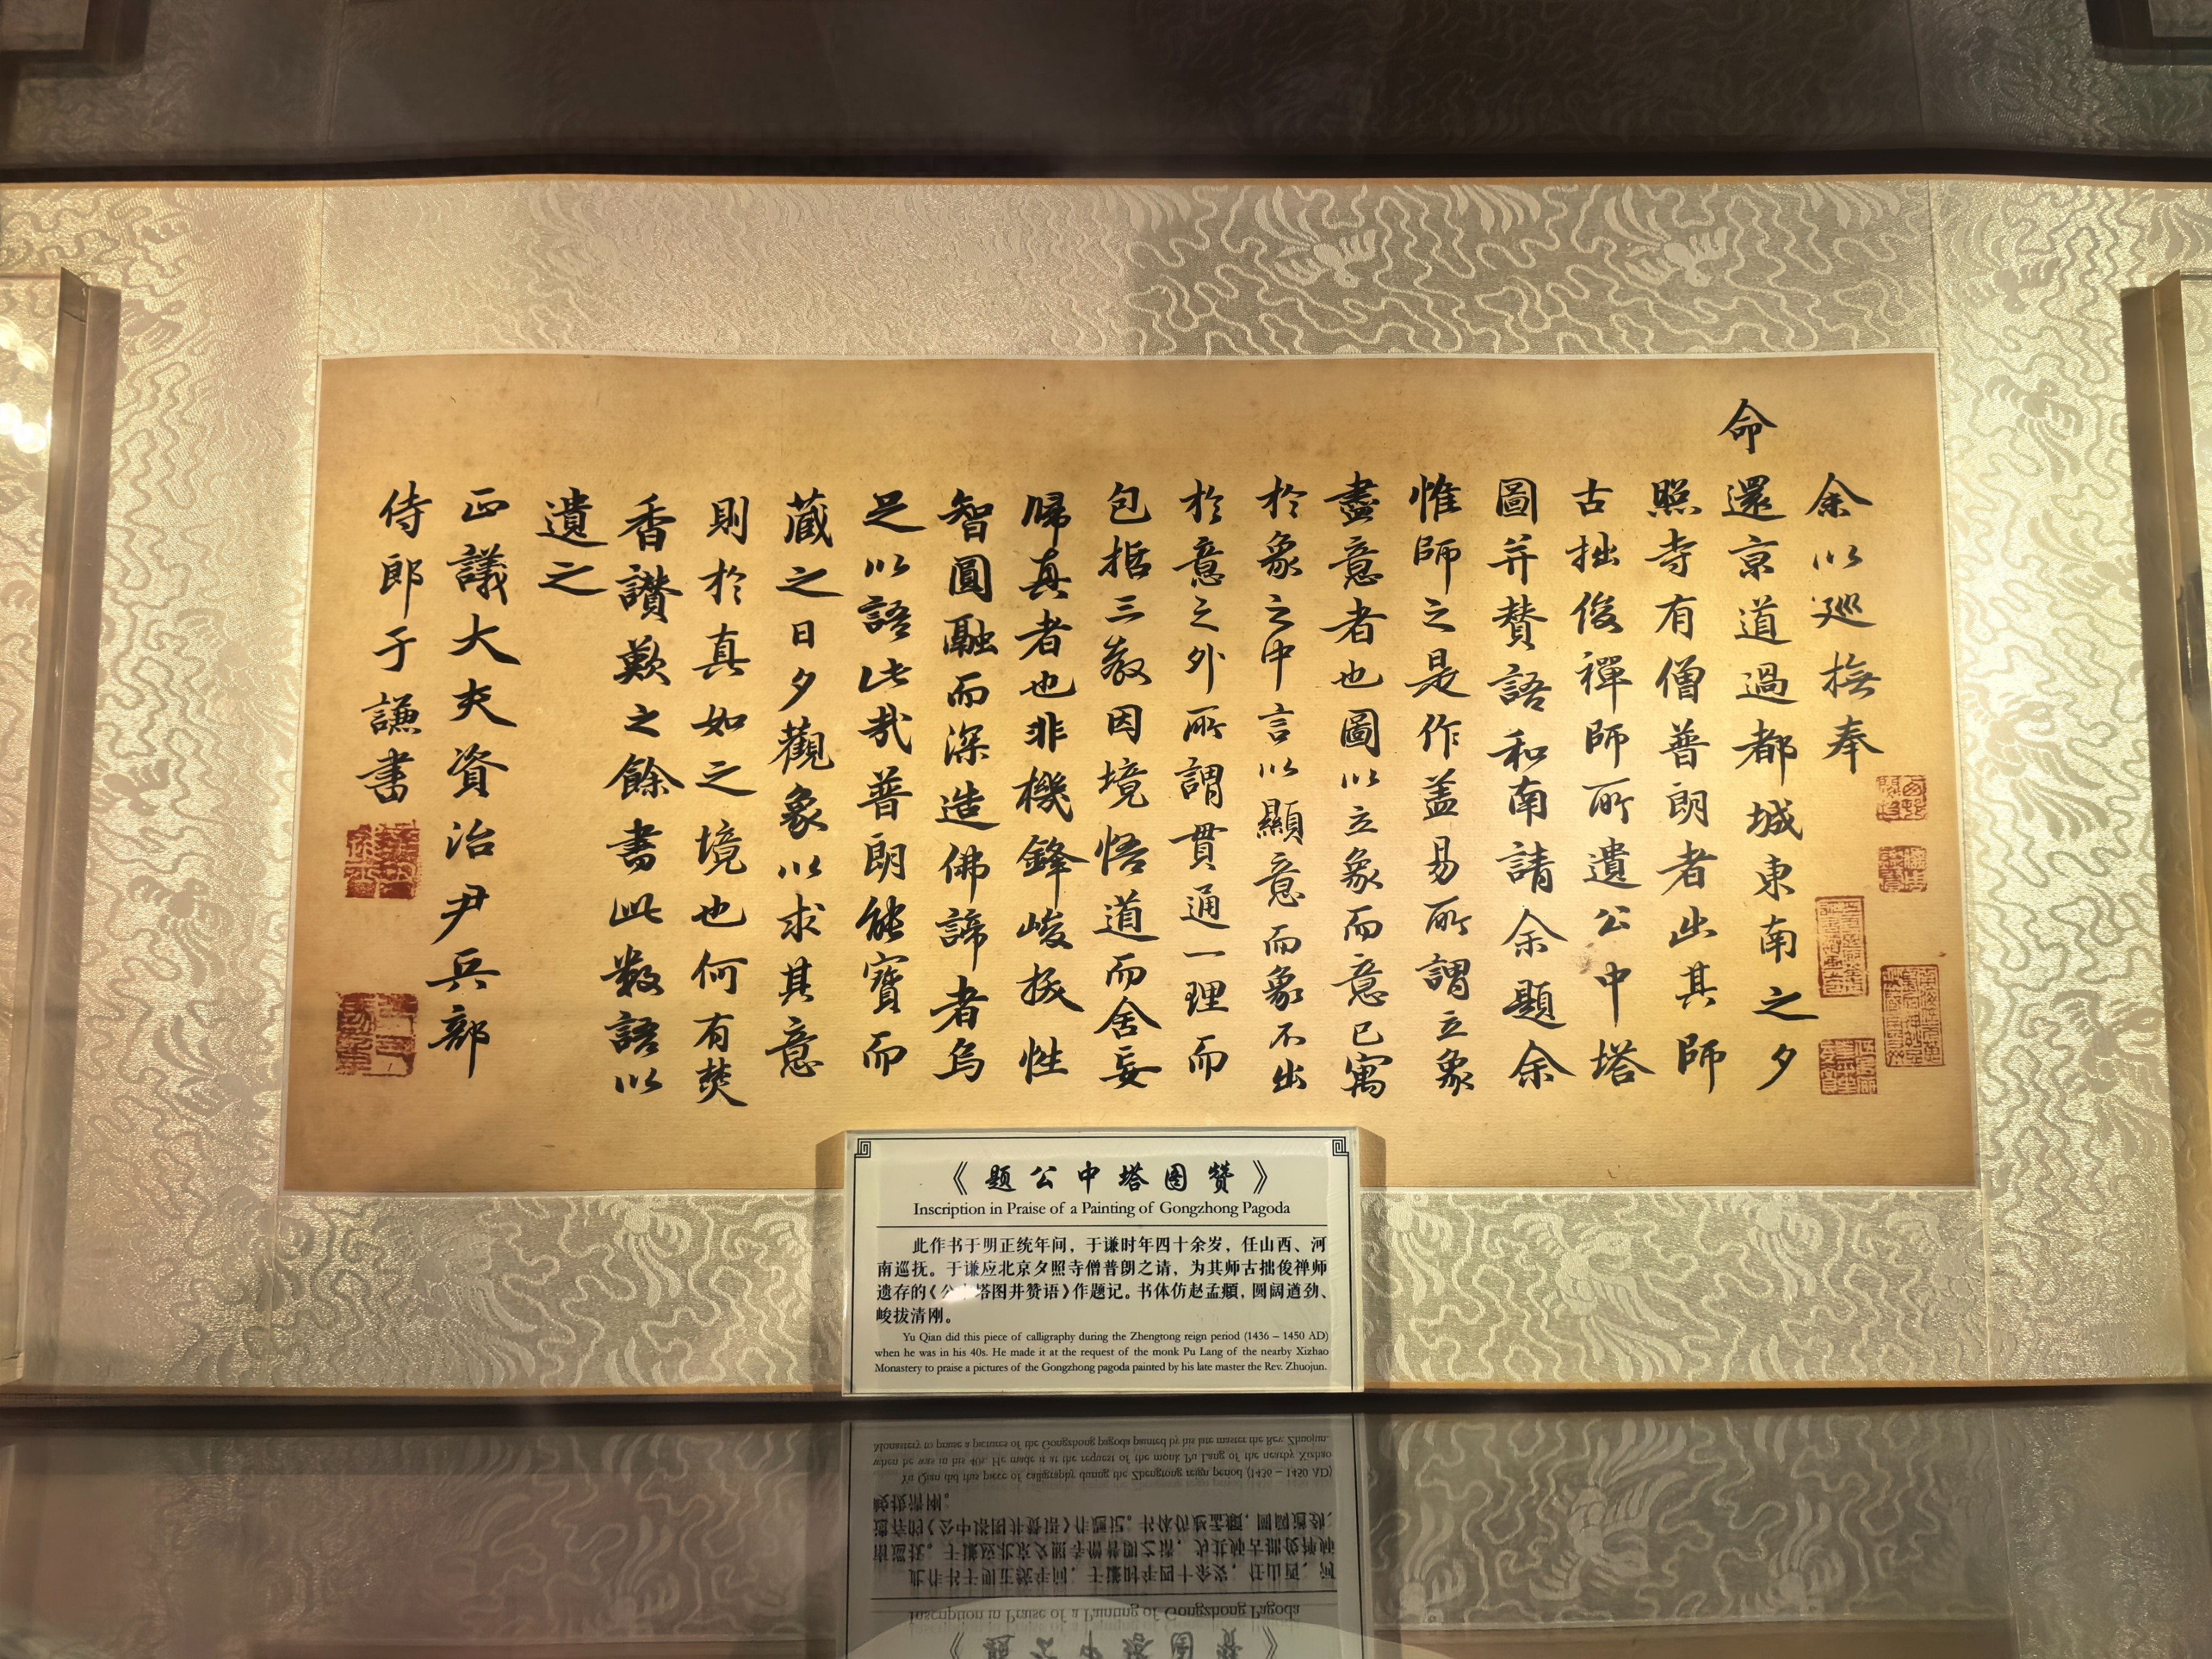 余以巡撫奉
命還京道過都城東南之夕
照寺有僧普朗者出其師
古拙俊禪師所遺公中塔
圖并贊語和南請余題余
惟師之是作蓋易所謂立象
盡意者也圖以立象而意已寓
於象之中言以顯意而象不出
於意之外所謂貫通一理而
包括三教因境悟道而舍妄
歸真者也非機鋒峻拔性
智圓融而深造佛諦者烏
足以語此哉普朗能寶而
藏之日夕觀象以求其意
則於真如之境也何有焚
香讚歎之餘書此數語以
遺之
正議大夫資治尹兵部
侍郎于謙書
《题公中塔图赞》
Inscription in Praise of a Painting of Gongzhong Pagoda
此作书于明正统年间，于谦时年四十余岁，任山西、河
南巡抚。于谦应北京夕照寺僧普朗之请，为其师古拙俊禅师
遗存的《公中塔图并赞语》作题记。书体仿赵孟頫，圆阔遒劲、
峻拔清刚。
Yu Qian did this piece of calligraphy during the Zhengtong reign period (1436 – 1450 AD)
when he was in his 40s. He made it at the request of the monk Pu Lang of the nearby Xizhao
Monastery to praise a pictures of the Gongzhong pagoda painted by his late master the Rev. Zhuojun.